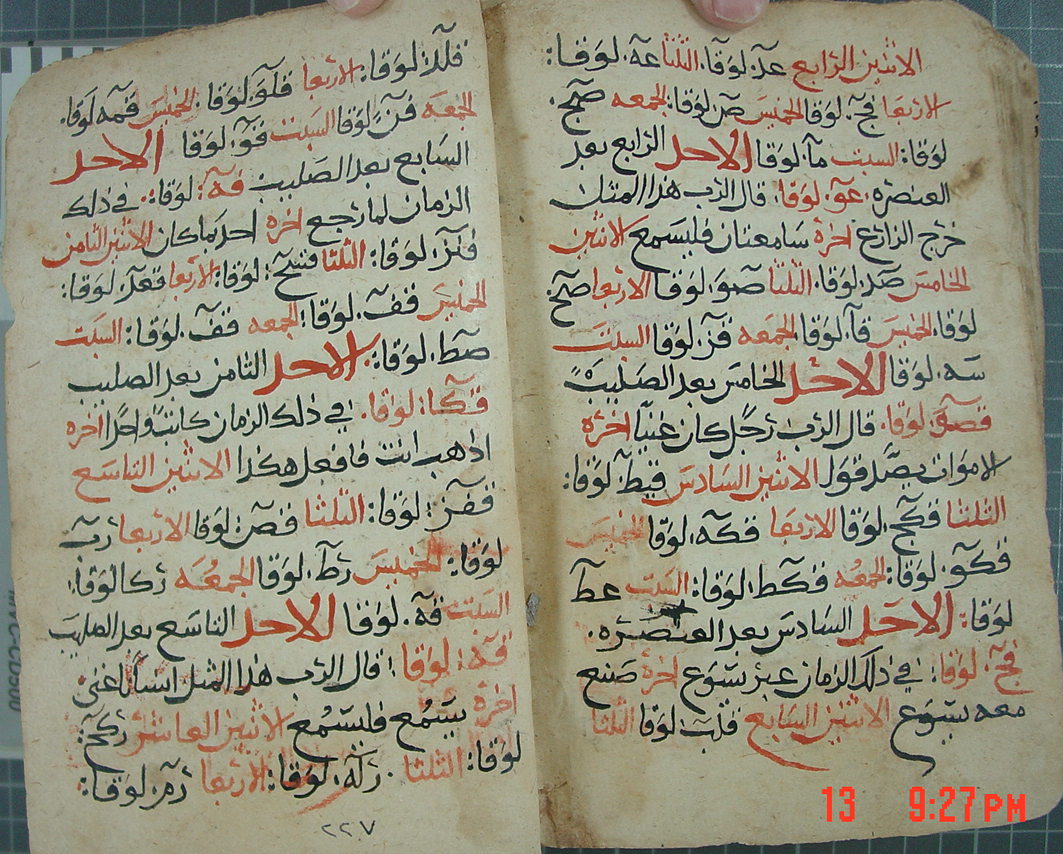 الاثنين الرابع عد لوقا الثلثا عه لوقا:
الاربعا فج لوقا الخميس ص لوقا: الجمعه صح
لوقا: السبت ما لوقا الاحد الرابع بعد
العنصره عو لوقا. قال الرب هدا المتل
خرج الزارع اخرة سامعتان فليسمع الاثنين
الخامس صد لوقا. الثلثا صو لوقا الاربعا صح
لوقا. الخميس فا لوقا الجمعه فز لوقا السبت
سه لوقا الاحد الخامس بعد الصليب
فصو لوقا. قال الرب رجل كان غنيا اخره
الاموات يصدقون الاثنين السادس قيط لوقا:
الثلثا فكج لوقا الاربعا فكه لوقا الخميس
فكو لوقا: الجمعه فكط لوقا: السبت عط
لوقا: الاحد السادس بعد العنصره.
فج لوقا: في ذلك الزمان عبر يسوع اخرة صنع
معه يسوع الاثنين السابع قلب لوقا الثلثا
قلد لوقا: الاربعا قلو لوقا الخميس قمه لوقا.
الجمعه قن لوقا السبت فو لوقا الاحد
السابع بعد الصليب فه لوقا: في ذلك
الزمان لما رجع اخره احد بما كان الاثنين الثامن
قنز لوقا: الثلثا قسح لوقا: الاربعا قعد لوقا:
الخميس قف لوقا: الجمعه قف لوقا: السبت
صط لوقا: الاحد الثامن بعد الصليب
فكا: لوقا. في ذلك الزمان كانت واحدا اخره
اذهب انت فافعل هكدا الاثنين التاسع
قفز لوقا: الثلثا قص لوقا الاربعا رب
لوقا: الخميس رط لوقا الجمعه ركا لوقا.
السبت فه لوقا الاحد التاسع بعد الصليب
فه: لوقا: قال الرب هذا المثل انسانا غني
اخرة يسمع فليسمع الاثنين العاشر ركح:
لوقا: الثلثا. رله لوقا: الاربعا رم لوقا:
٢٢٧
13 9:27PM